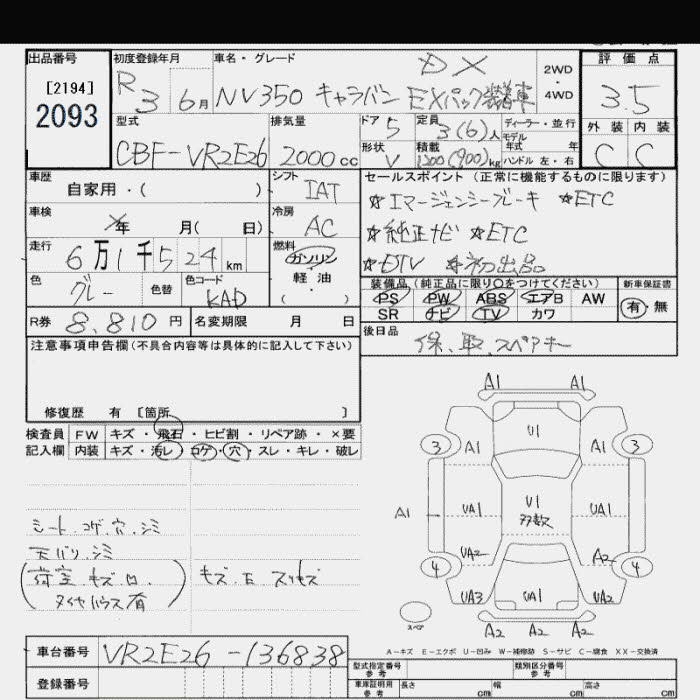 出品番号
[2194]
2093
初度登録年月
R 3 6月
車名・グレード
DX
NV350 キャラバン EXパック装着車
2WD
・
4WD
評価点
3.5
外装 内装
C C
型式
CBF-VR2E26
排気量
2000cc
ドア 5
形状 V
定員 3(6)人
積載 1200(900)kg
ディーラー・並行
モデル
年式 年
ハンドル 左・右
車歴
自家用・( )
シフト
IAT
車検
年 月( 日)
冷房
AC
走行
6万1千524km
燃料
ガソリン
軽油
・
( )
色
グレー
色替
色コード
KAD
R券 8,810円
名変期限 月 日
セールスポイント (正常に機能するものに限ります)
☆エマージェンシーブレーキ ☆ETC
☆純正ナビ ☆ETC
☆DTV ☆初出品
装備品(純正品に限り○をつけてください)
PS PW ABS エアB AW
SR ナビ TV カワ
新車保証書
有・無
後日品
保、取、スペアキー
注意事項申告欄(不具合内容等は具体的に記入して下さい)
修復歴 有 [箇所 ]
検査員 FW キズ・飛石・ヒビ割・リペア跡・×要
記入欄 内装 キズ・汚レ・コゲ・穴・スレ・キレ・破レ
シート、コゲ、穴、シミ
天バリ、シミ
(荷室 キズ、凹、
タイヤハウス有)
キズ、E、スリキズ
A1 A1
3 A1 U1 A1 3
A1 UA1 U1 UA1
多数
UA2 A2
4 4
UA3 UA1 UA2
スペア
A2 A2 A2
A-キズ E-エクボ U-凹み W-補修跡 S-サビ C-腐食 XX-交換済
車台番号 VR2E26-136838
登録番号
型式指定番号
参考
類別区分番号
参考
車庫証明用
参考
長さ cm 幅 cm 高さ cm